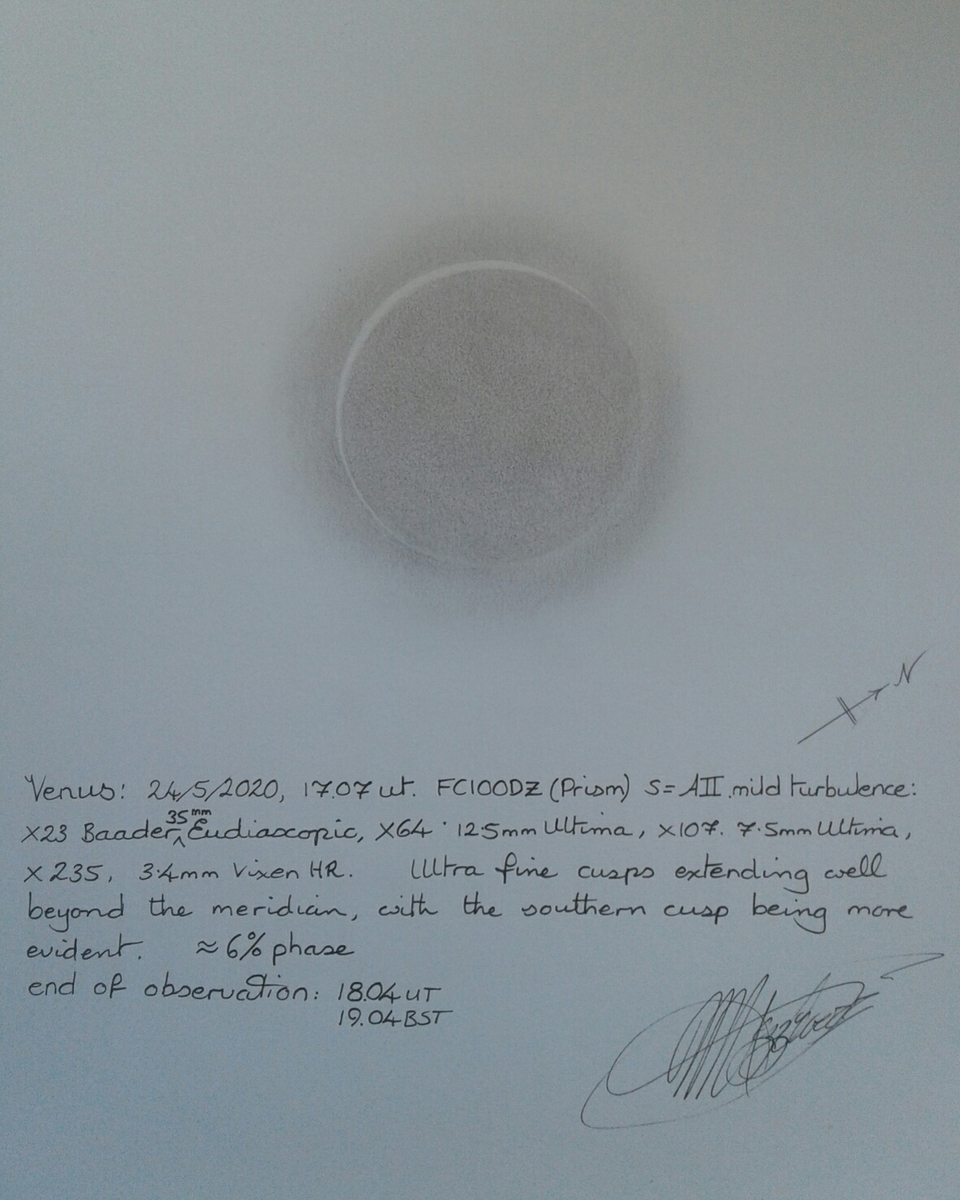 N
Venus: 24/5/2020, 17.07 ut. FC100DZ (Prism) S=AII mild turbulence:
x23 Baader 35mm Eudiascopic, x64 · 12.5mm Ultima, x107. 7.5mm Ultima,
x235, 3.4mm Vixen HR. Ultra fine cusps extending well
beyond the meridian, with the southern cusp being more
evident. ≈6% phase
end of observation: 18.04 UT
19.04 BST